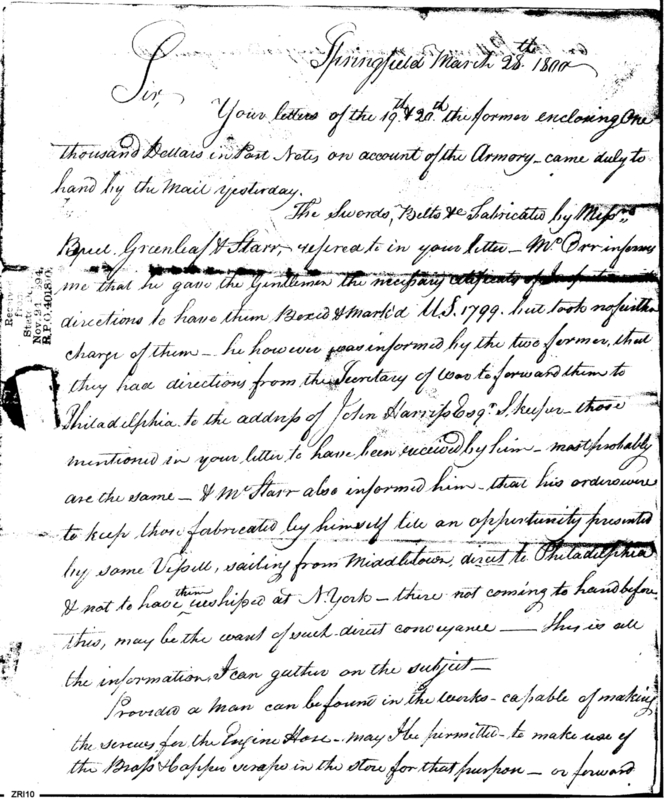 Springfield March 28th 1800
Sir,
Your letters of the 19th & 20th the former enclosing One
thousand Dollars in Post Notes on account of the Armory - came duly to
hand by the Mail yesterday.
The Swords, Belts &c fabricated by Messrs
Greenleaf & Starr, - refered to in your letter - Mr Orr informs
me that he gave the Gentlemen the necessary certificates
directions to have them Boxed & Mark'd U.S. 1799. but took no further
charge of them - he however was informed by the two former, that
they had directions from the Secretary of War to forward them to
Philadelphia to the address of John Harris Esqr. S.keeper - those
mentioned in your letter to have been received by him - most probably
are the same - & Mr Starr also informed him - that his orders were
to keep those fabricated by himself till an opportunity presented
by some Vessell, sailing from Middletown, direct to Philadelphia
& not to have them reshiped at N.York - there not coming to hand before
this, may be the want of such direct conveyance — this is all
the information, I can gather on the subject -
Provided a man can be found in the works - capable of making
the screws for the Engine Hose - may I be permitted - to make use of
the Brass & Copper scraps in the store for that purpose - or forward
Nov. 24, 1894,
R.P.O. 401800.
ZRI10